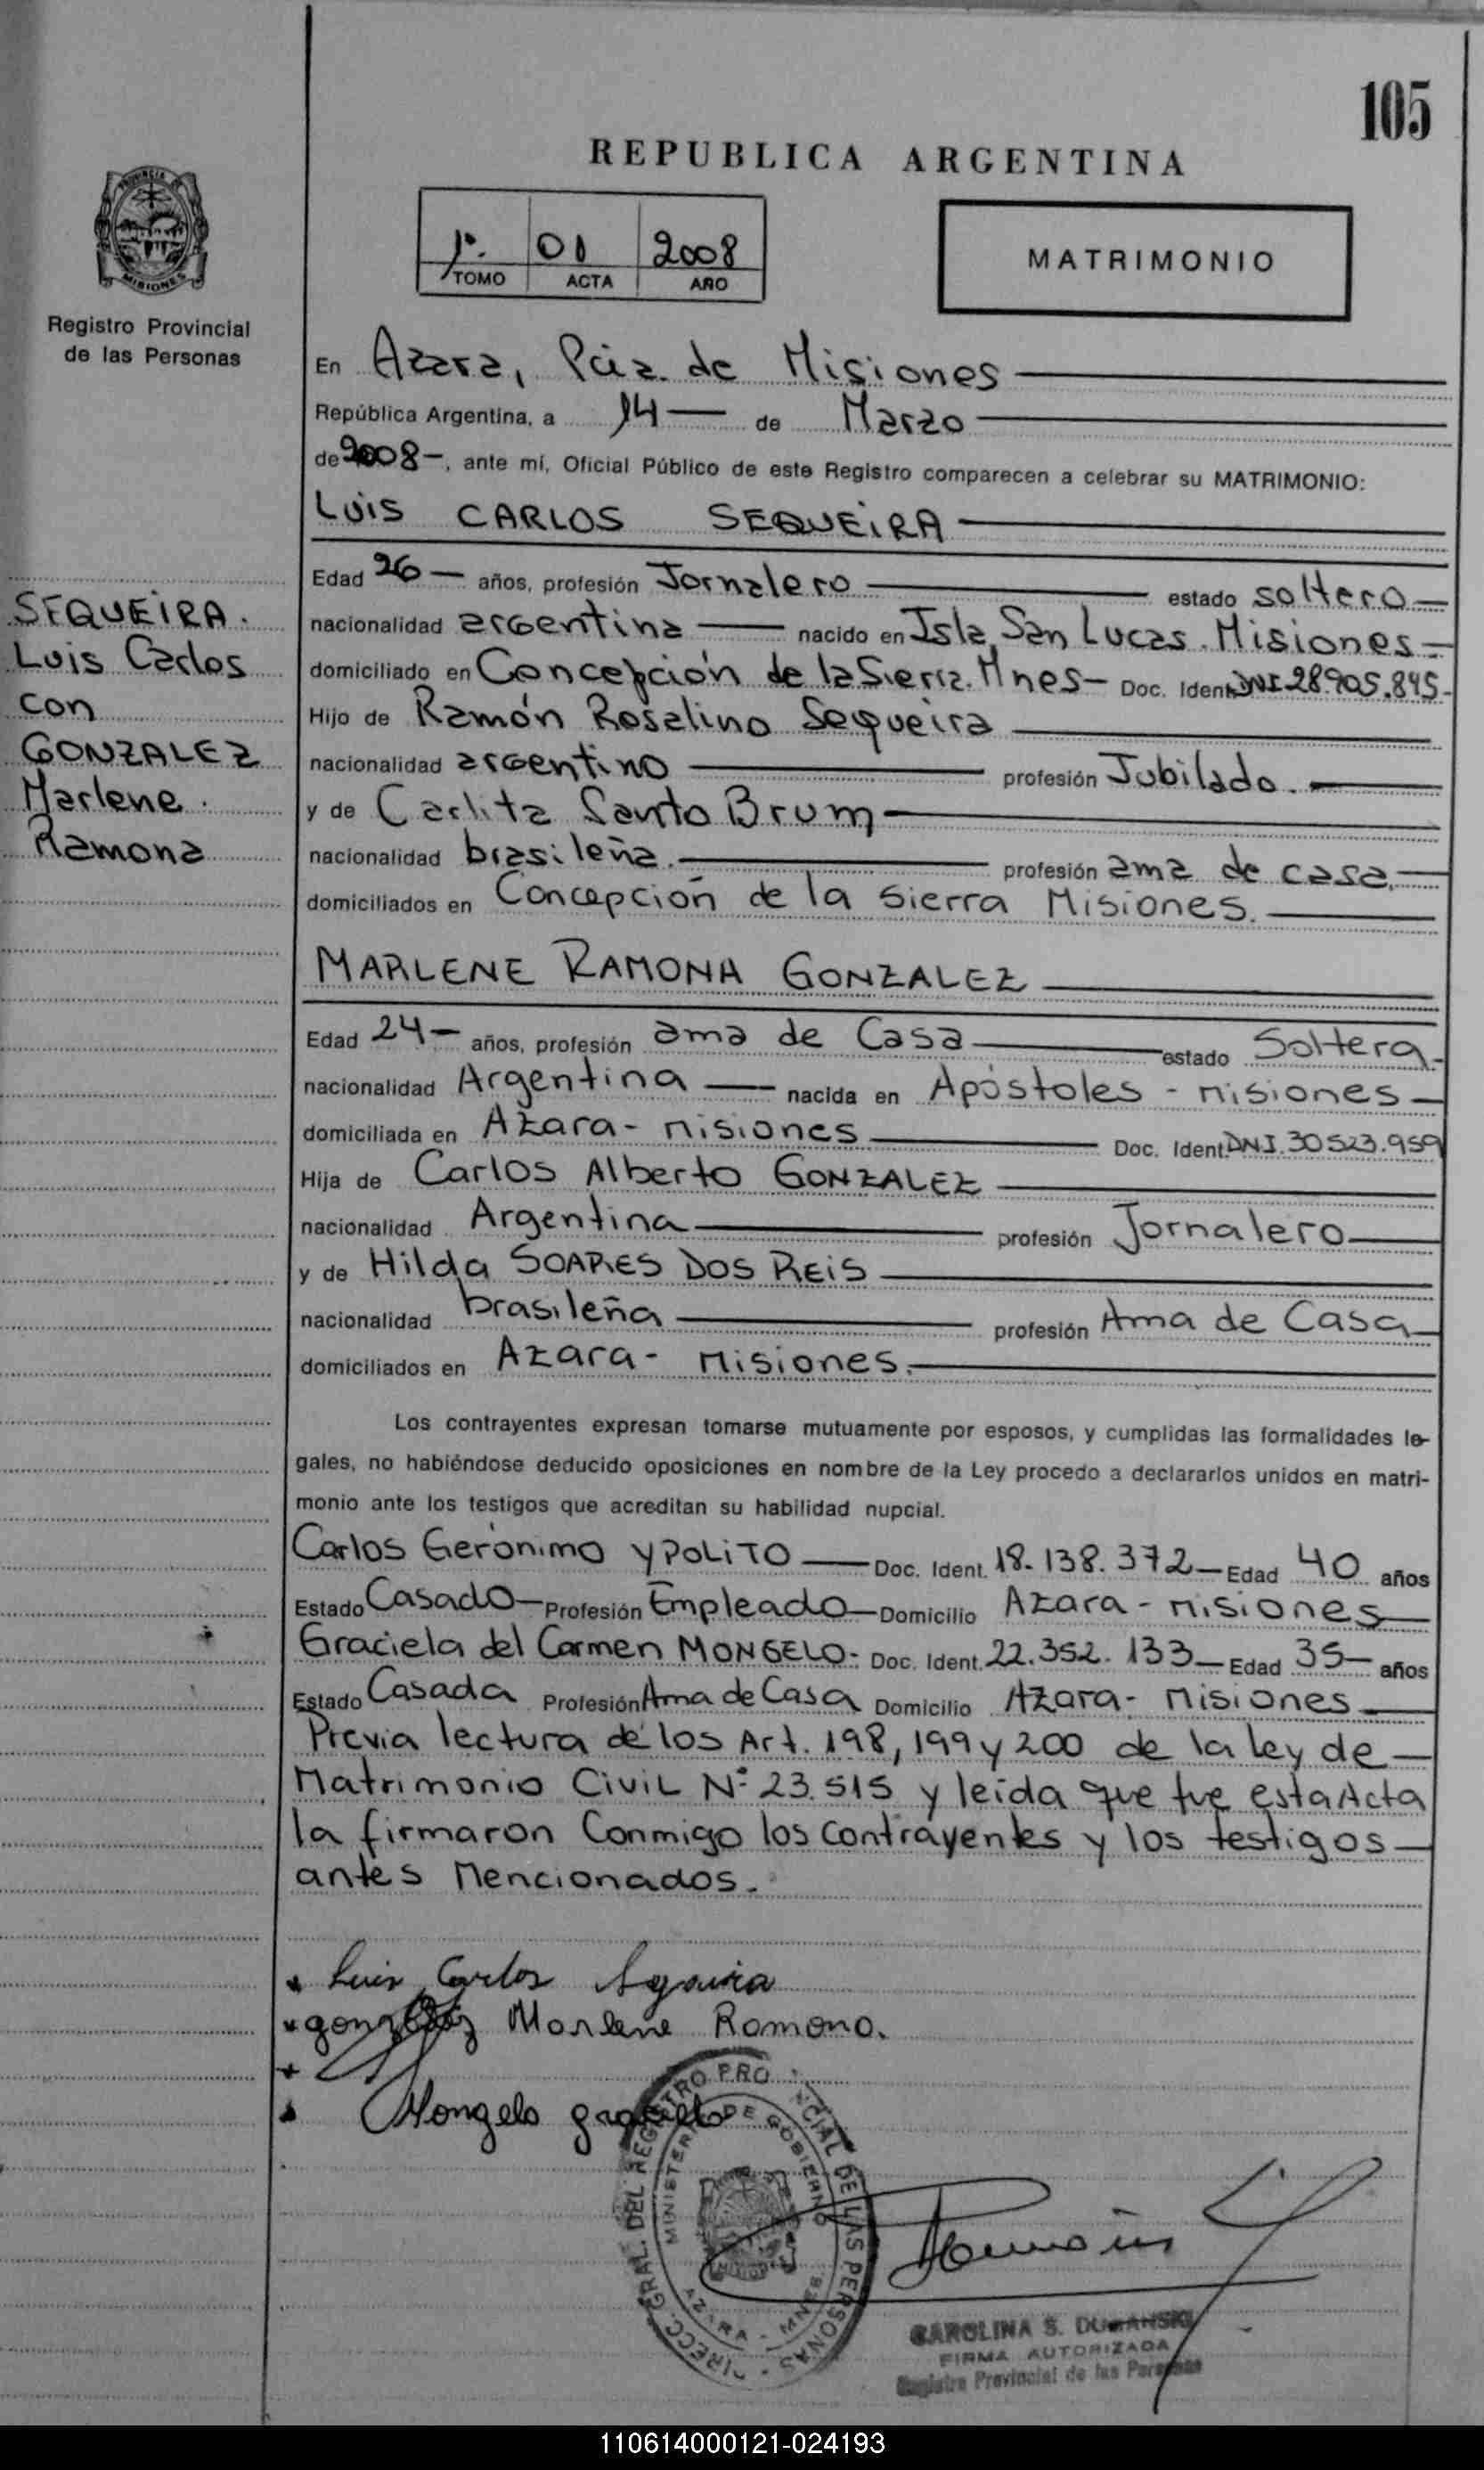 105
REPUBLICA ARGENTINA
PROVINCIA DE
MISIONES
Registro Provincial
de las Personas
1º. 01 2008
TOMO ACTA AÑO
MATRIMONIO
En Azara, Pcia. de Misiones
República Argentina, a 14 de Marzo
de 2008-, ante mí, Oficial Público de este Registro comparecen a celebrar su MATRIMONIO:
LUIS CARLOS SEQUEIRA
Edad 26 años, profesión Jornalero estado soltero
nacionalidad argentina nacido en Isla San Lucas. Misiones
domiciliado en Concepción de la Sierra. Mnes- Doc. Ident. DNI 28.905.845-
Hijo de Ramón Rosalino Sequeira
nacionalidad argentino profesión Jubilado.
y de Carlita Santo Brum
nacionalidad brasileña. profesión ama de casa.
domiciliados en Concepción de la sierra Misiones.
SEQUEIRA.
Luis Carlos
con
GONZALEZ
Marlene.
Ramona
MARLENE RAMONA GONZALEZ
Edad 24 años, profesión ama de Casa estado Soltera
nacionalidad Argentina nacida en Apóstoles - Misiones
domiciliada en Azara - Misiones Doc. Ident. DNI. 30523.959
Hija de Carlos Alberto GONZALEZ
nacionalidad Argentina profesión Jornalero
y de Hilda SOARES DOS REIS
nacionalidad brasileña profesión Ama de Casa
domiciliados en Azara - Misiones.
Los contrayentes expresan tomarse mutuamente por esposos, y cumplidas las formalidades le-
gales, no habiéndose deducido oposiciones en nombre de la Ley procedo a declararlos unidos en matri-
monio ante los testigos que acreditan su habilidad nupcial.
Carlos Gerónimo YPOLITO Doc. Ident. 18.138.372 Edad 40 años
Estado Casado Profesión Empleado Domicilio Azara - Misiones
Graciela del Carmen MONGELO- Doc. Ident. 22.352.133 Edad 35 años
Estado Casada Profesión Ama de Casa Domicilio Azara - Misiones
Previa lectura de los Art. 198, 199 y 200 de la Ley de
Matrimonio Civil Nº 23.515 y leída que fue esta Acta
la firmaron Conmigo los Contrayentes y los testigos
antes Mencionados.
Luis Carlos
gonzalez Marlene Ramona.
Mongelo graciela
DIRECC. GRAL. DEL REGISTRO PROVINCIAL DE LAS PERSONAS
MINISTERIO DE GOBIERNO
AZARA - MNES.
CAROLINA S.
FIRMA AUTORIZADA
Registro Provincial de las Personas
110614000121-024193